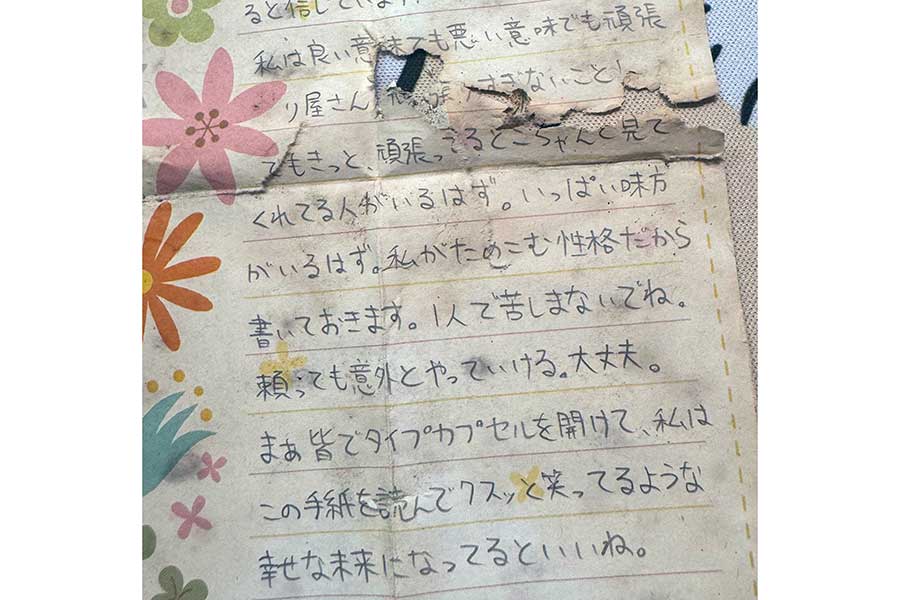 ると信じています。
私は良い意味でも悪い意味でも頑張
り屋さん 頑張りすぎないこと!
でもきっと、頑張ってるとこちゃんと見て
くれてる人がいるはず。いっぱい味方
がいるはず。私がためこむ性格だから
書いておきます。1人で苦しまないでね。
頼っても意外とやっていける。大丈夫。
まぁ皆でタイプカプセルを開けて、私は
この手紙を読んでクスッと笑ってるような
幸せな未来になってるといいね。